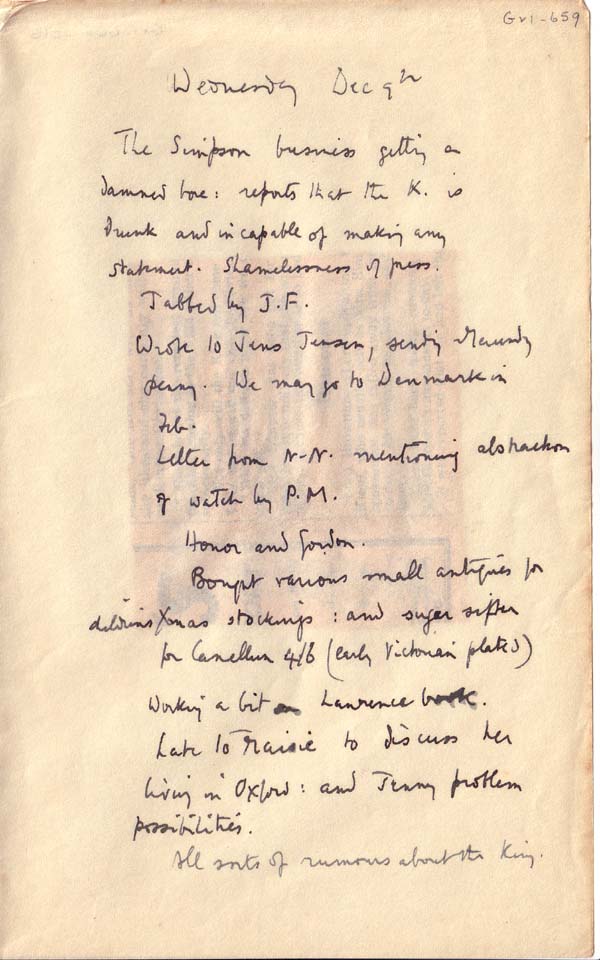 Gri-659
Wednesday Dec 9th
The Simpson business getting a
damned bore: reports that the K. is
drunk and incapable of making any
statement. Shamelessness of press.
Tabbed by J.F.
Wrote to Jens Jensen, sending Maundy
penny. We may go to Denmark in
Feb.
Letter from N-N. mentioning abstraction
of watch by P.M.
Honor and Gordon.
Bought various small antiques for
children's Xmas stockings: and sugar sifter
for Canellun 4/6 (early Victorian plated)
Working a bit on Lawrence book.
Late to Maisie to discuss her
living in Oxford: and Jenny problem
possibilities.
All sorts of rumours about the King.